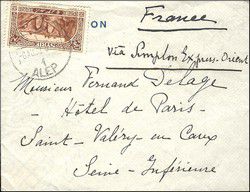 France
ION
Via Simplon Express-Orient
ALEP
Monsieur Fernand Delage
- Hôtel de Paris -
Saint-Valéry-en Caux
Seine-Inférieure